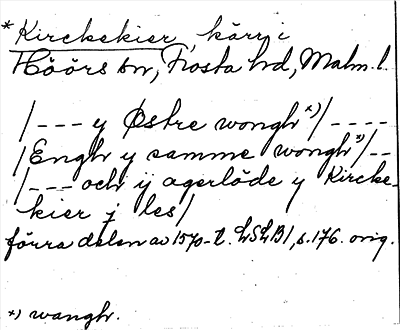 * Kirckekier, kärr i
Höörs sn, Frosta hd, Malm. l.
/--- y Østre wongh *)/----
/Engh y samme wongh *)/--
/--- och ij agerløde y Kircke-
kier j les/
förra delen av 1570-t. LSLB1, s. 176. orig.
*) wangh.